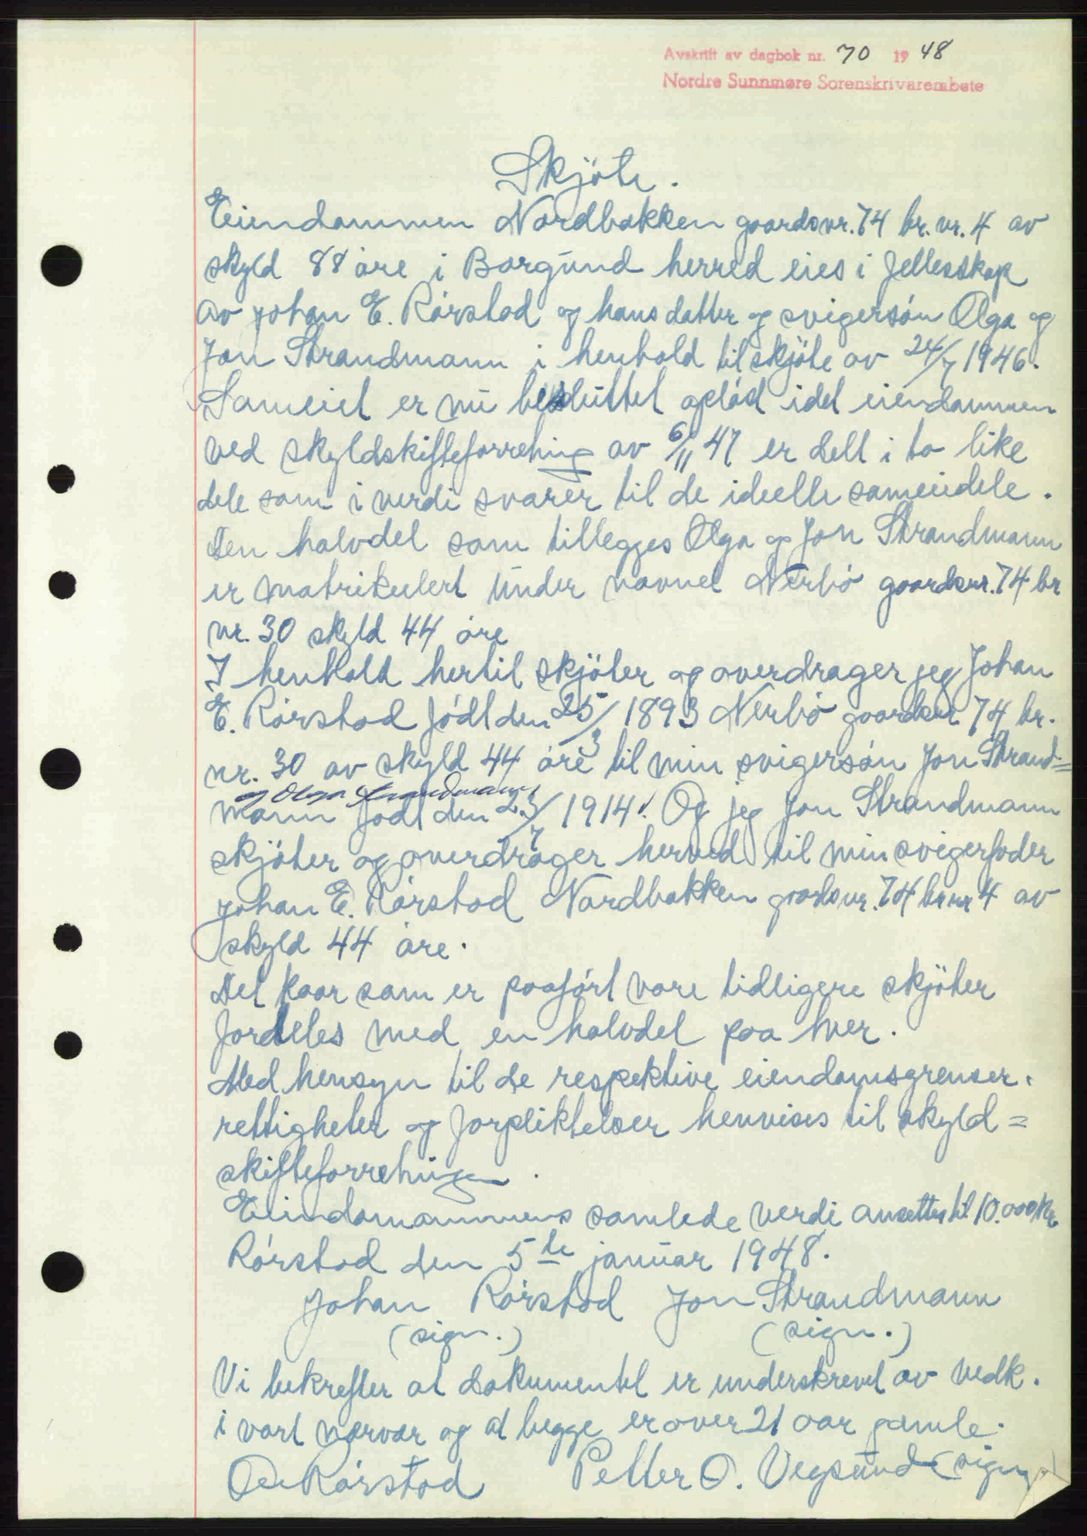 Avskrift av dagbok nr. 70 1948
Nordre Sunnmøre Sorenskrivarembete
Skjöte.
Eiendommen Nordbakken gaardsnr. 74 br. nr. 4 av
skyld 88 öre i Borgund herred eies i fellesskap
av Johan E. Rörstad og hans datter og svigersön Olga og
Jon Strandmann i henhold til skjöte av 24/7 1946.
Sameiet er nu besluttet oplöst idet eiendommen
ved skyldskifteforretning av 6/11 47 er delt i to like
dele som i verdi svarer til de ideelle sameiedele.
Den halvdel som tillegges Olga og Jon Strandmann
er matrikulert under navnet Nerbö gaardsnr. 74 br
nr. 30 skyld 44 öre
I henhold hertil skjöter og overdrager jeg Johan
E. Rörstad födt den 25/3 1893 Nerbö gaardsnr 74 br.
nr. 30 av skyld 44 öre til min svigersön Jon Strand=
og Olga Strandmann
mann födt den 23/7 1914. Og jeg Jon Strandmann
skjöter og overdrager herved til min svigerfader
Johan E. Rörstad Nordbakken gaardsnr. 74 br nr 4 av
skyld 44 öre.
Det kaar som er paafört vore tidligere skjöter
fordeles med en halvdel paa hver.
Med hensyn til de respektive eiendomsgrenser,
rettigheter og forpliktelser henvises til skyld=
skifteforretningen.
Eiendomammens samlede verdi ansettes til 10.000 kr.
Rörstad den 5te januar 1948.
Johan Rörstad Jon Strandmann
(sign.) (sign.)
Vi bekrefter at dokumentet er underskrevet av vedk.
i vort nærvær og at begge er over 21 aar gamle.
Rörstad Petter O. Vegsund (sign.)